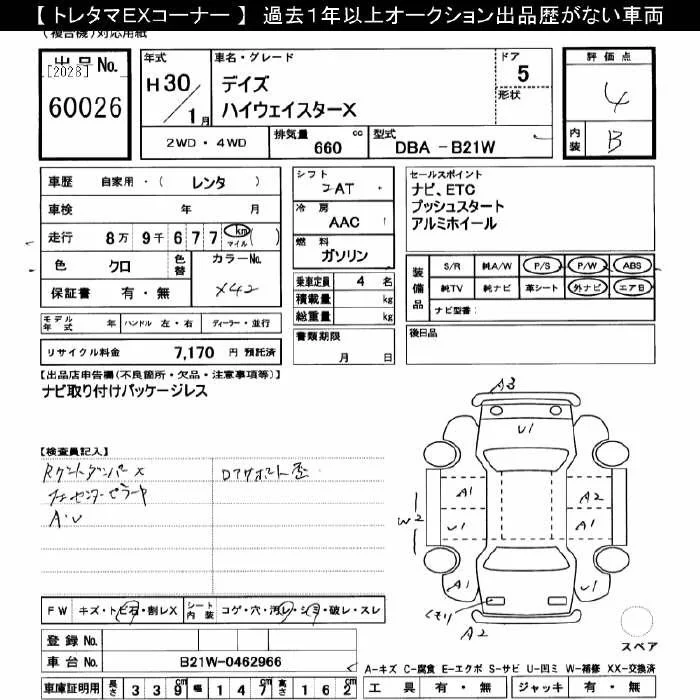 【 トレタマEXコーナー 】 過去１年以上オークション出品歴がない車両
(複合機)対応用紙
出品No.
[2028]
60026
年式
H30/1月
車名・グレード
デイズ
ハイウェイスターX
ドア
5
形状
評価点
4
内装
B
2WD・4WD
排気量
660 cc
型式
DBA - B21W
車歴 自家用・( レンタ )
車検 年 月
走行 8万 9千 6 7 7 km マイル ( )
色 クロ
色替
カラーNo.
X42
保証書 有・無
シフト
2AT
冷房
AAC
燃料
ガソリン
乗車定員 4 名
積載量 kg
総重量 kg
セールスポイント
ナビ、ETC
プッシュスタート
アルミホイール
装備品
S/R 純A/W P/S P/W ABS
純TV 純ナビ 革シート 外ナビ エアB
ナビ型番：
モデル年式 年 ハンドル 左・右 ディーラー・並行
リサイクル料金 7,170 円 預託済
書類期限
月 日
後日品
【出品店申告欄(不良箇所・欠品・注意事項等)】
ナビ取り付けパッケージレス
【検査員記入】
A・U
A3
U1
A1
A2
W2
U1
A1
A1
U1
A2
スペア
FW キズ・トビ石・割レX
シート内装 コゲ・穴・汚レ・シミ・破レ・スレ
登録No.
車台No. B21W-0462966
A-キズ C-腐食 E-エクボ S-サビ U-凹ミ W-補修 XX-交換済
車庫証明用 長さ 3 3 9 cm 幅 1 4 7 cm 高さ 1 6 2 cm
工具 有・無 ジャッキ 有・無